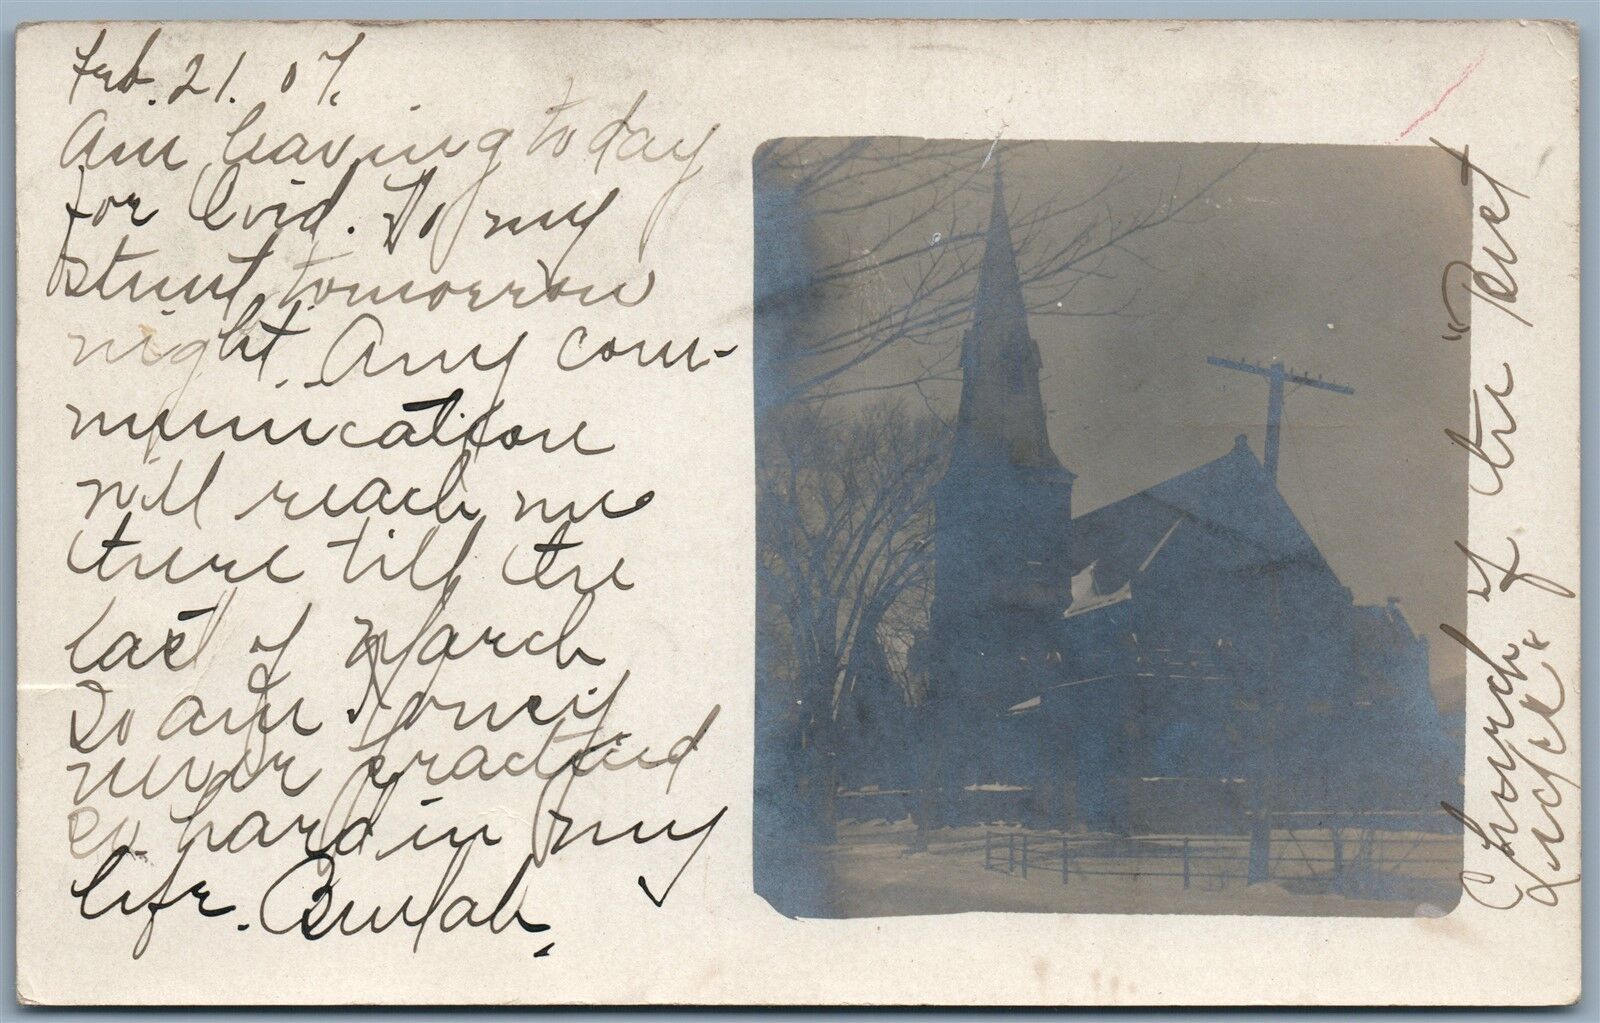 Feb. 21. 07.
Am leaving today
for Ovid. Do my
stunt tomorrow
night. Any com-
munication
will reach me
there till the
last of March
So am
never practiced
so hard in my
life. Beulah.
Church of the "Rest